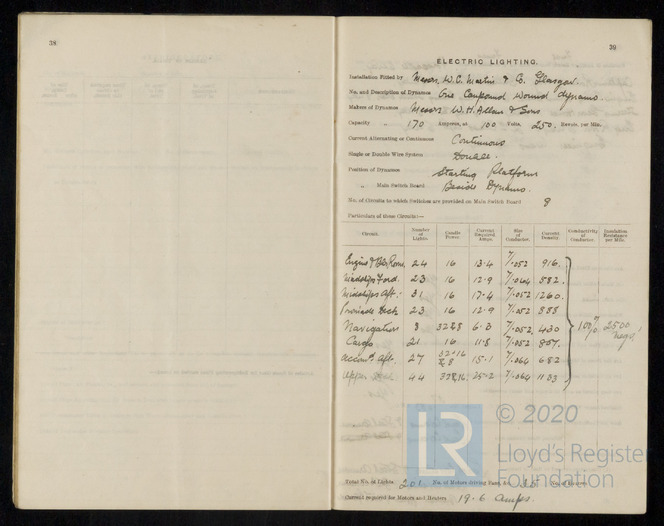 38
39
ELECTRIC LIGHTING.
Installation Fitted by Messrs. W. C. Martin & Co. Glasgow.
No. and Description of Dynamos One Compound Wound dynamo.
Makers of Dynamos Messrs W. H. Allen & Sons
Capacity " 170 Amperes, at 100 Volts, 250. Revols. per Min.
Current Alternating or Continuous Continuous
Single or Double Wire System Double.
Position of Dynamos Starting Platform
" Main Switch Board Beside Dynamo.
No. of Circuits to which Switches are provided on Main Switch Board 8
Particulars of these Circuits:—
Circuit. Number of Lights. Candle Power. Current Required. Amps. Size of Conductor. Current Density. Conductivity of Conductor. Insulation Resistance per Mile.
Engine & Blr Room. 24 16 13.4 7/.052 916.
Midships Ford. 23 16 12.9 7/.064 582.
Midships Aft. 31 16 17.4 7/.052 1260.
Promenade Deck 23 16 12.9 7/.052 888
Navigation 8 32&8 6.3 7/.052. 430 100% 2500 megs.
Cargo 21 16 11.8 7/.052 807.
Accomn. Aft. 27 32·16 &8 15.1 7/.064 682
Upper 44 16. 25.2 7/.064 1133
Total No. of Lights 201. No. of Motors driving Fans, &c. No. of Heaters
Current required for Motors and Heaters 19.6 amps.
© 2020
LR
Lloyd's Register
Foundation